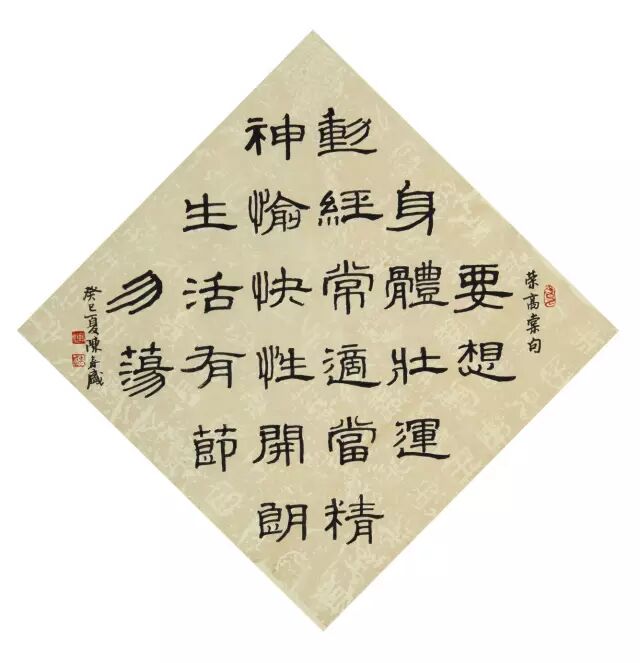 荣高棠句
要想
身體壯運
動經常適當精
神愉快性開朗
生活有節
勿蕩
癸巳夏陳春盛